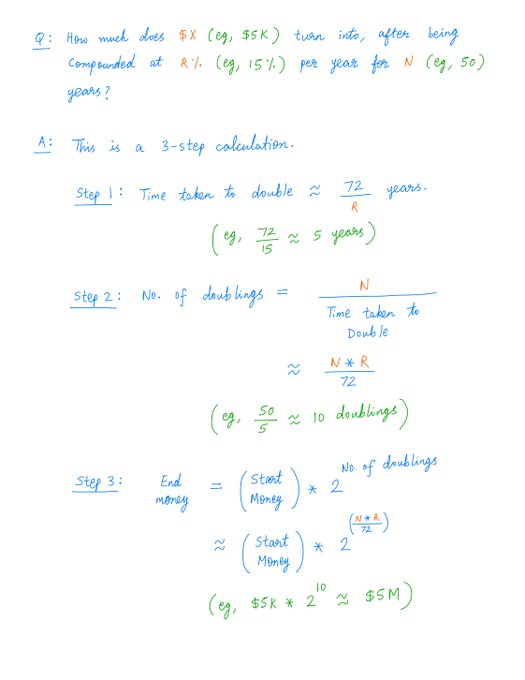 Q: How much does $X (eg, $5K) turn into, after being
compounded at R% (eg, 15%) per year for N (eg, 50)
years?
A: This is a 3-step calculation.
Step 1: Time taken to double ≈ 72/R years.
(eg, 72/15 ≈ 5 years)
Step 2: No. of doublings = N / Time taken to Double
≈ N * R / 72
(eg, 50/5 ≈ 10 doublings)
Step 3: End money = (Start Money) * 2^No. of doublings
≈ (Start Money) * 2^(N * R / 72)
(eg, $5K * 2^10 ≈ $5M)